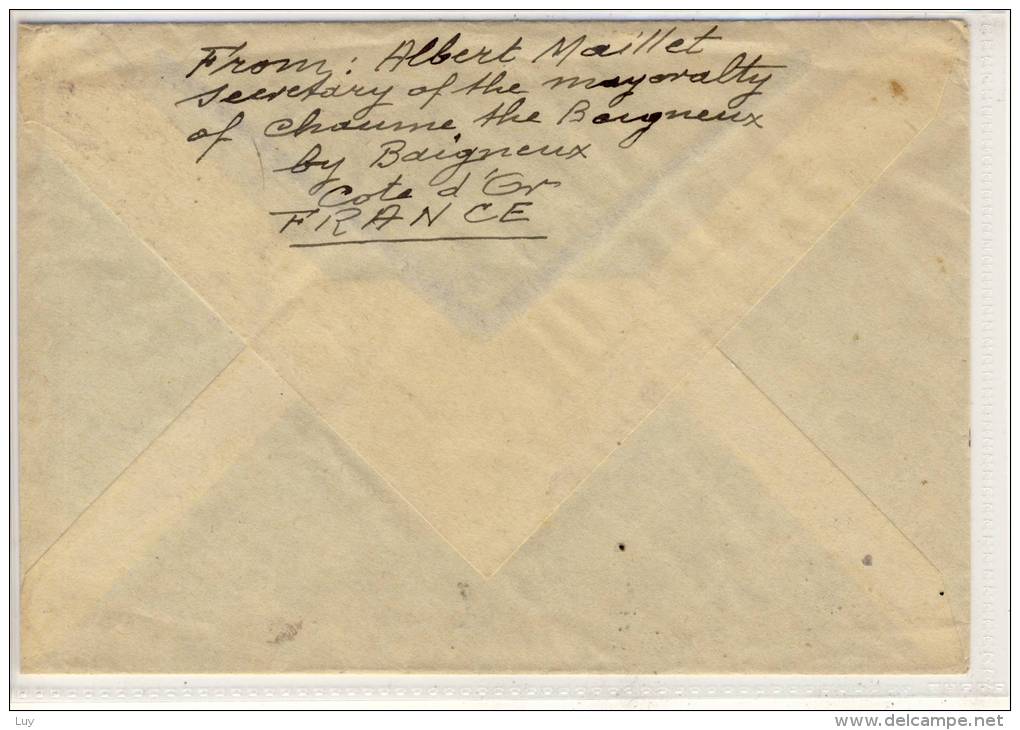 From: Albert Maillet
secretary of the mayoralty
of Chaume the Baigneux
by Baigneux
Cote d'Or
FRANCE
Luy
www.delcampe.net